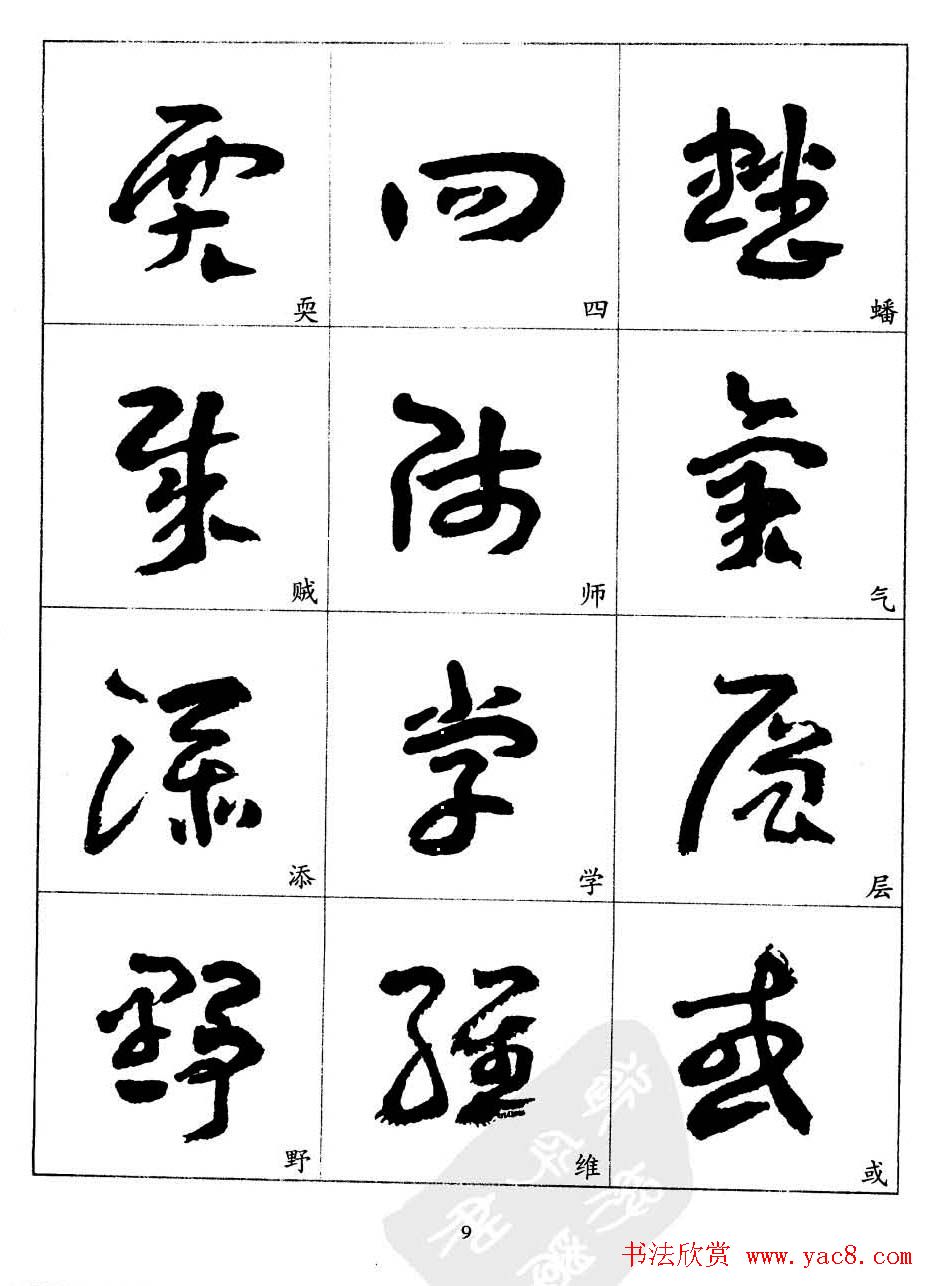 耎 四 蟠
贼 师 气
添 学 层
野 维 或
9
书法欣赏 www.yac8.com